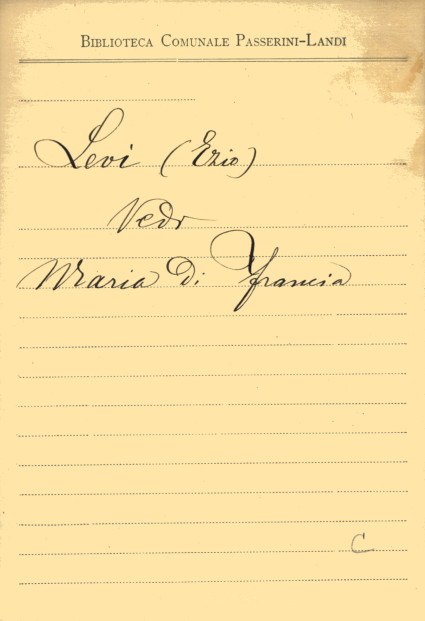 Biblioteca Comunale Passerini-Landi
Levi (Ezio)
Vedi
Maria di Francia
C